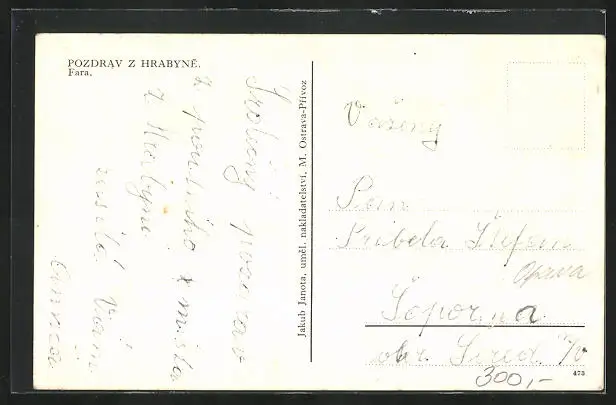 POZDRAV Z HRABYNĚ.
Fara.
Srdečný pozdrav
z poutního místa
z Hrabyně
zasílá Vám
Jakub Janota, uměl. nakladatelství, M. Ostrava-Přívoz
Vážený
Pan
Pribela Štefan
Oprava
Šoporňa
okr. Sereď n/V
300,-
473